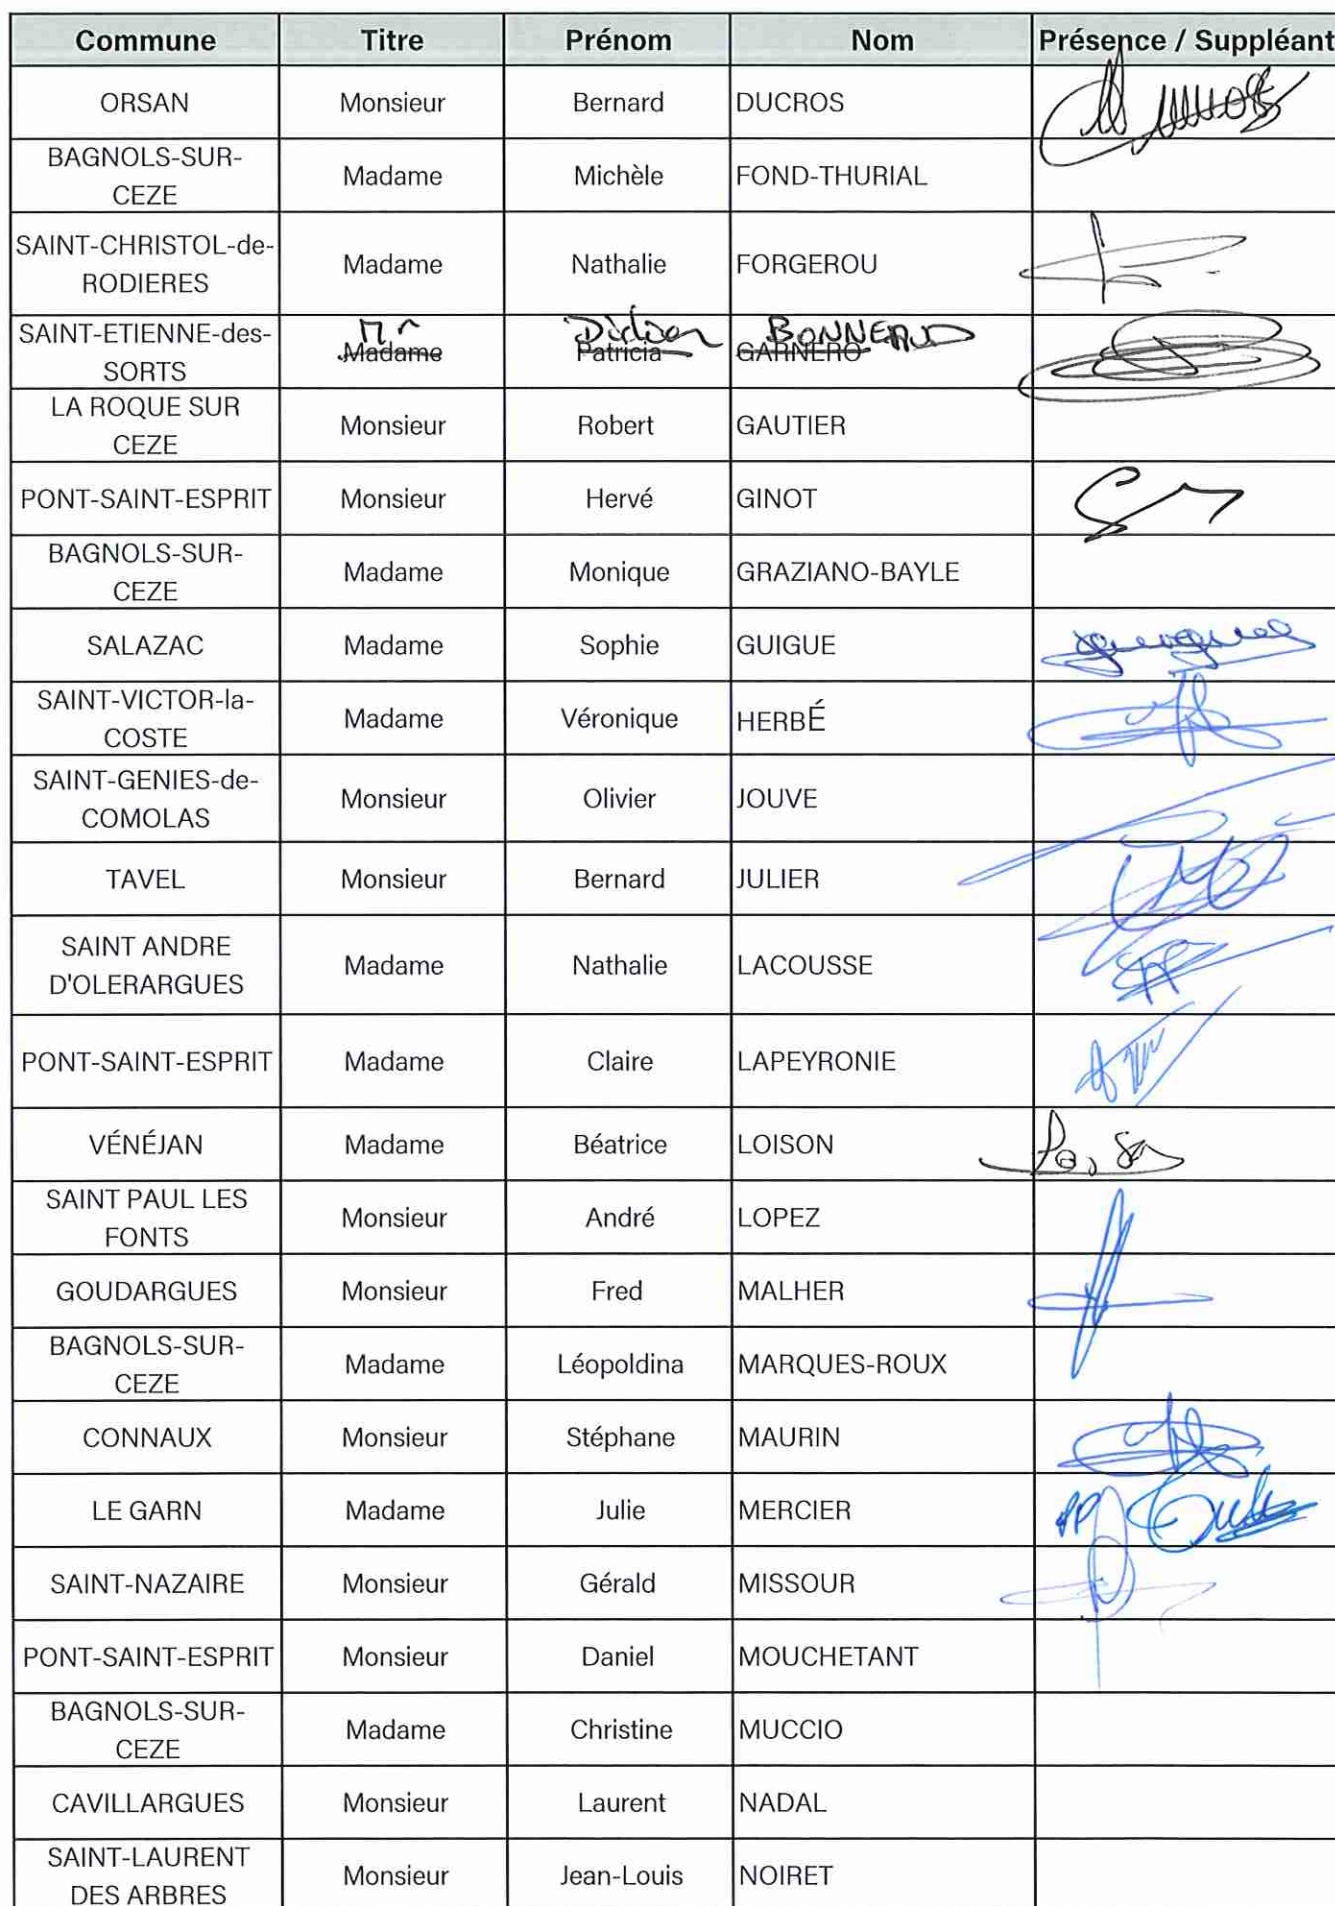 Commune Titre Prénom Nom Présence / Suppléant
ORSAN Monsieur Bernard DUCROS
BAGNOLS-SUR-
CEZE Madame Michèle FOND-THURIAL
SAINT-CHRISTOL-de-
RODIERES Madame Nathalie FORGEROU
Mr Didier BONNEAUD
SAINT-ETIENNE-des-
SORTS Madame Patricia GARNERO
LA ROQUE SUR
CEZE Monsieur Robert GAUTIER
PONT-SAINT-ESPRIT Monsieur Hervé GINOT
BAGNOLS-SUR-
CEZE Madame Monique GRAZIANO-BAYLE
SALAZAC Madame Sophie GUIGUE
SAINT-VICTOR-la-
COSTE Madame Véronique HERBÉ
SAINT-GENIES-de-
COMOLAS Monsieur Olivier JOUVE
TAVEL Monsieur Bernard JULIER
SAINT ANDRE
D'OLERARGUES Madame Nathalie LACOUSSE
PONT-SAINT-ESPRIT Madame Claire LAPEYRONIE
VÉNÉJAN Madame Béatrice LOISON
SAINT PAUL LES
FONTS Monsieur André LOPEZ
GOUDARGUES Monsieur Fred MALHER
BAGNOLS-SUR-
CEZE Madame Léopoldina MARQUES-ROUX
CONNAUX Monsieur Stéphane MAURIN
LE GARN Madame Julie MERCIER PP
SAINT-NAZAIRE Monsieur Gérald MISSOUR
PONT-SAINT-ESPRIT Monsieur Daniel MOUCHETANT
BAGNOLS-SUR-
CEZE Madame Christine MUCCIO
CAVILLARGUES Monsieur Laurent NADAL
SAINT-LAURENT
DES ARBRES Monsieur Jean-Louis NOIRET